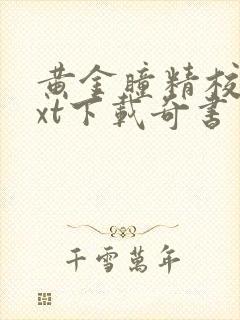 黄金瞳精校
xt下載奇書
千雪萬年